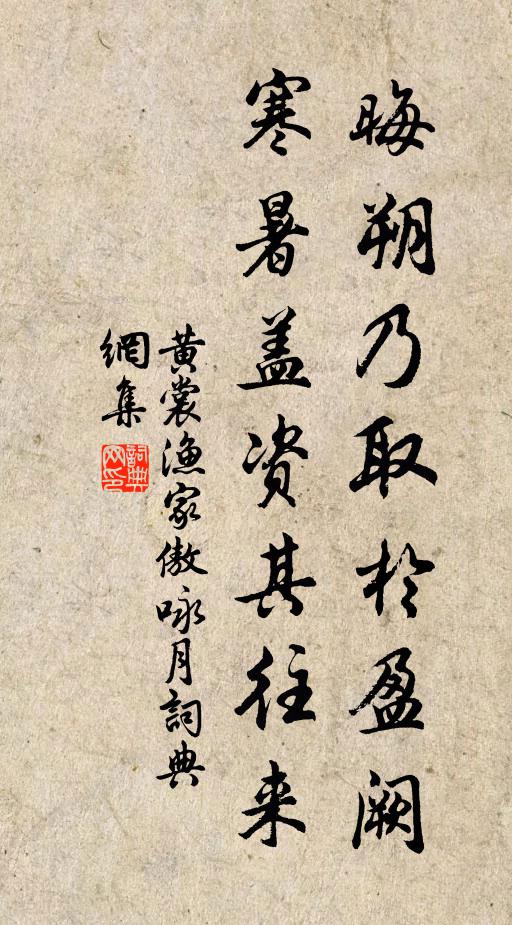 晦朔乃取於盈阙
寒暑盖资其往来
黄裳渔家傲咏月詞典
網集
詞典网印